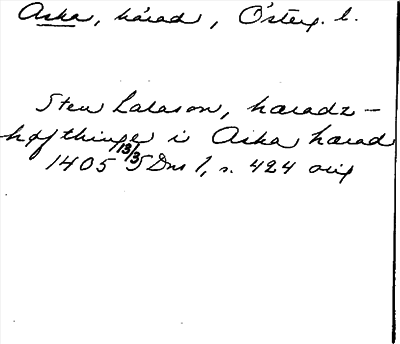 Aska, härad, Österg. l.
Sten Laласon, haradz-
høfthinge i Aska harad
1405 13/3 SDns 1, s. 424 orig